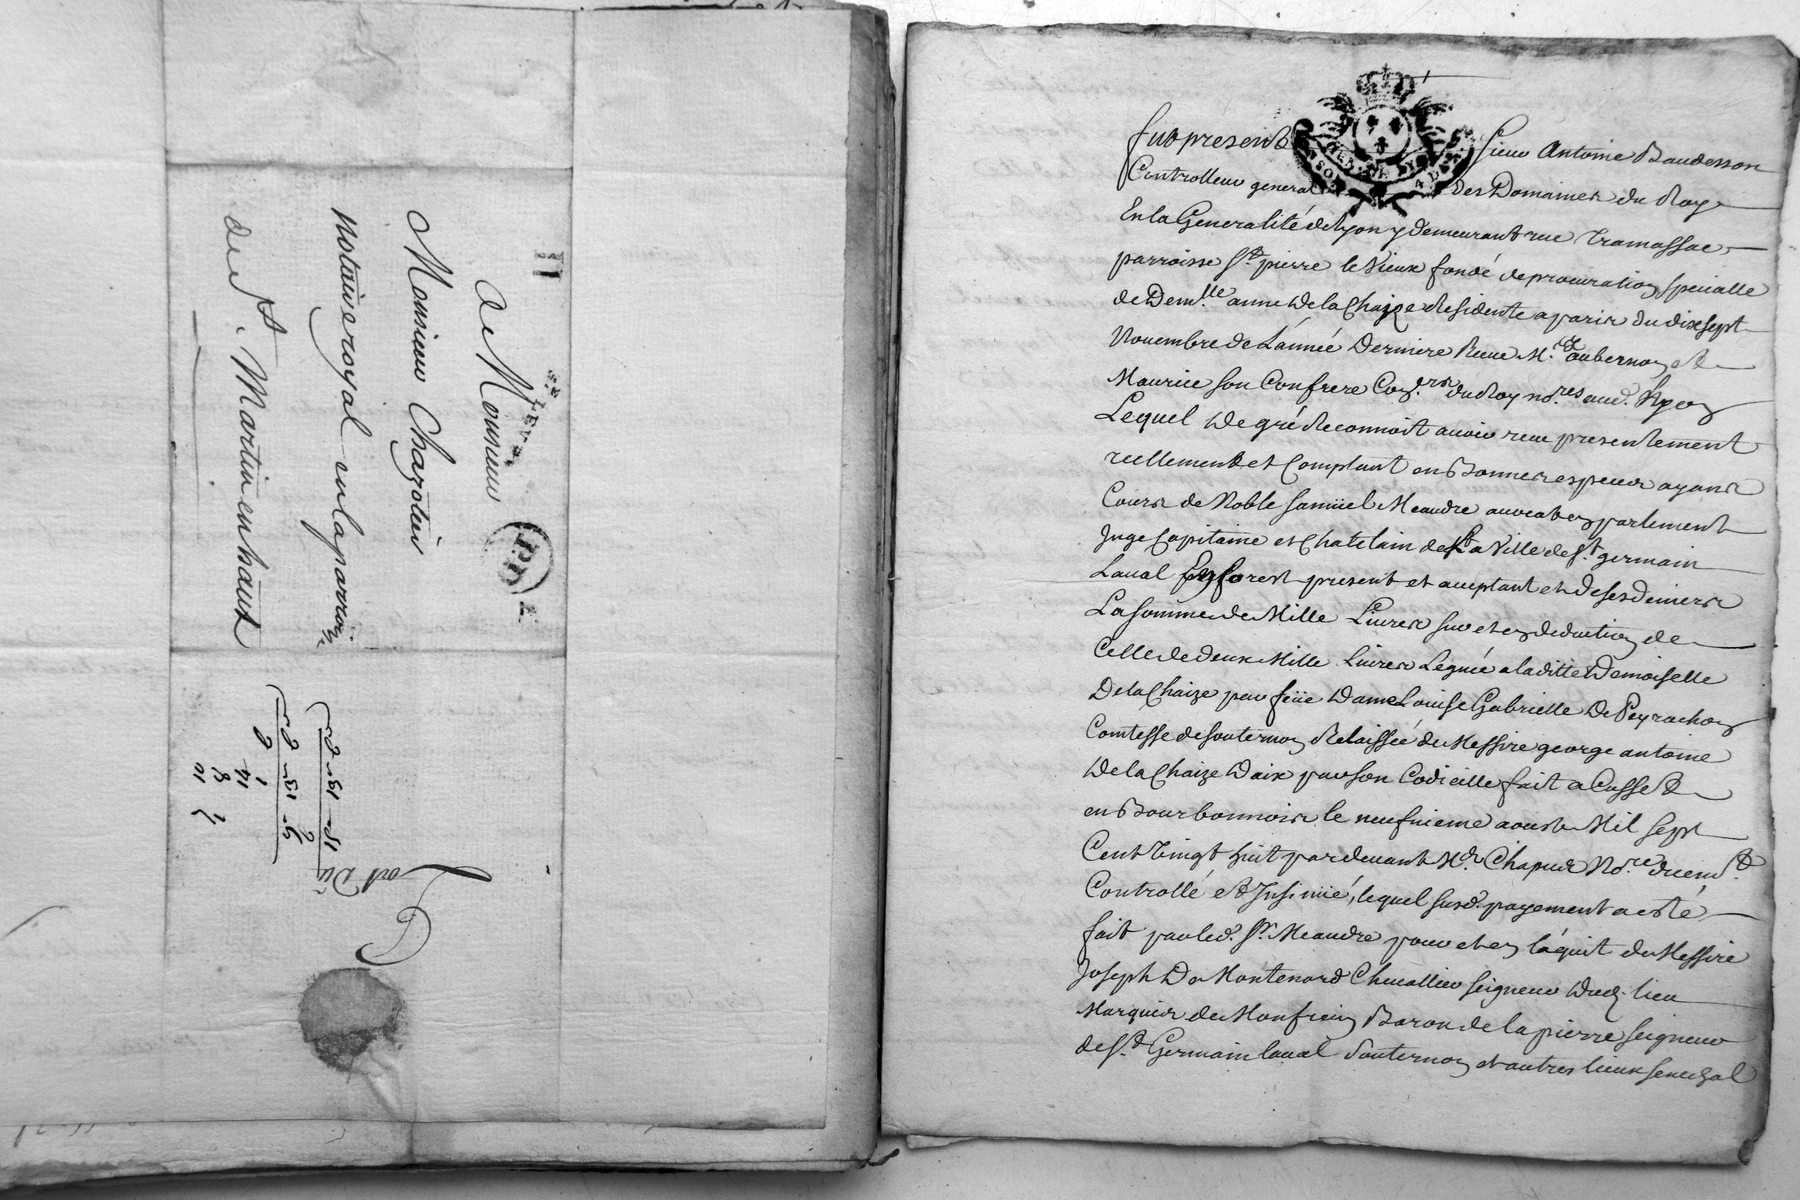 A Monsieur
Monsieur Chazotier
Notaire royal en la parroiz
de St. Martin en haut
P.P.
Port Dû
fut present Sieur Antoine Baudesson
Controlleur general des Domaines du Roy
En la Generalité de Lyon y demeurant rue Tramassac
parroisse St. pierre le Vieux fondé de procuration specialle
de Demlle anne De la Chaize Residente a paris du dix sept
Novembre de L'année Derniere Receue Mr. et
Maurice son Confrere Coners. du Roy nores aud.
Lequel De gré Reconnoit avoir receu presentement
reellement et Comptant en Bonnes especes ayans
Cours de Noble Samüel Meaudre avocat en parlement
Juge Capitaine et Chatelain de la Ville de St. germain
Laval En forest present et acceptant et de ses deniers
La Somme de Mille Livres sur et en deduction de
Celle de deux Mille Livres Leguée a laditte Demoiselle
De la Chaize par feüe Dame Louise Gabrielle De Peyrachon
Comtesse de Souternon Relaissée de Messire george antoine
De la Chaize Daix par son Codicille fait a Cusset
en Bourbonnois le neufvieme aoust Mil Sept
Cent Vingt huit par devant Me. Nore.
Controllé et Insinué, lequel susd. payement a esté
fait par led. Sr. Meaudre pour et en l'aquit de Messire
Joseph De Montenard Chevallier seigneur Dud. lieu
Marquis de Monfrin Baron de la pierre seigneur
de St. Germain laval Souternon et autres lieux senechal